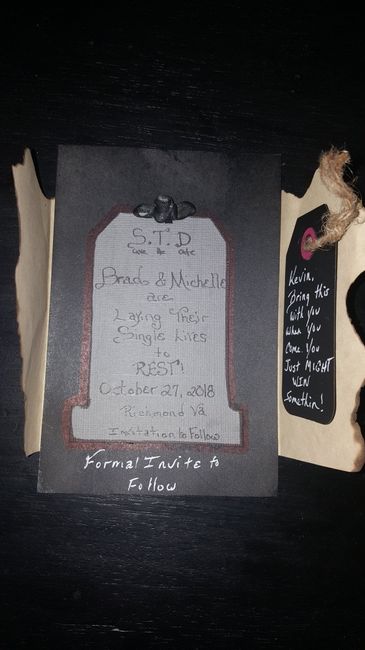 S.T.D
Save the Date
Brad & Michelle
are
Laying Their
Single Lives
to
REST!
October 27, 2018
Richmond Va.
Invitation to Follow
Formal Invite to
Follow
Kevin,
Bring this
with you
when you
come. You
Just MIGHT
WIN
Somethin!